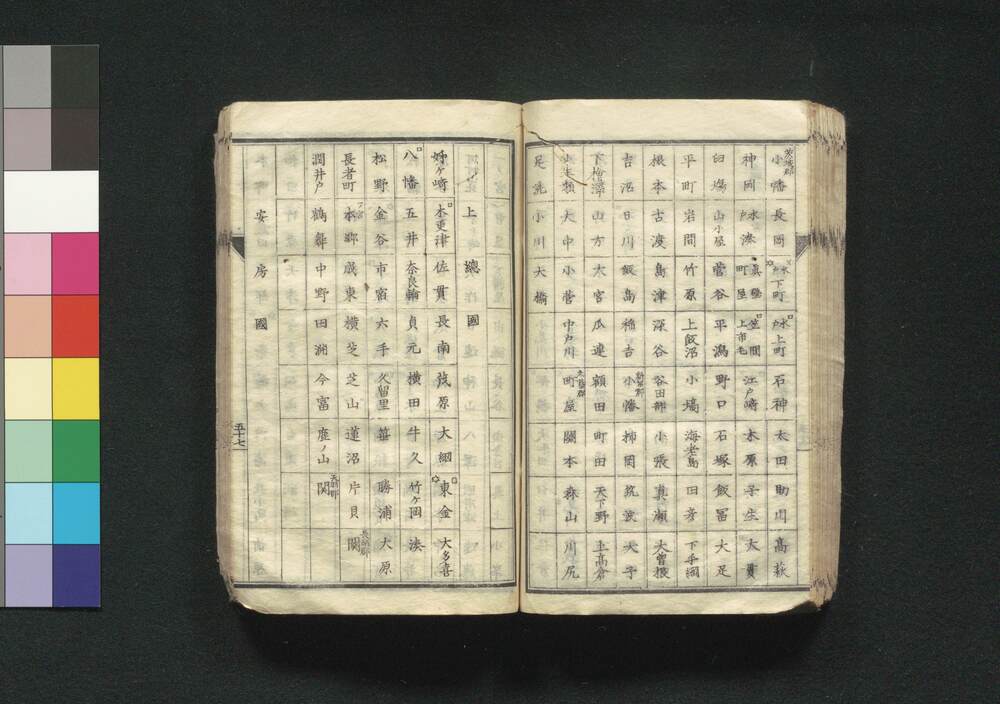 茨城郡 小幡 長岡 水戸下町 水戸上町 石神 太田 助川 高萩
神岡 水湊 真壁町屋 笠間 上市毛 江戸崎 木原 子生 大貫
臼塲 山小屋 菅谷 平潟 野口 石塚 飯冨 大足
平町 岩間 竹原 上飯沼 小塙 海老島 田彦 下手綱
根本 古渡 島津 深谷 谷田部 小張 真瀬 大曽根
吉沼 日川 飯島 稲吉 新治郡 小幡 柿岡 筑波 大子
下檜澤 山方 太宮 瓜連 額田 町田 天下野 上高倉
小生瀬 大中 小菅 中戸川 久慈郡 町屋 關本 森山 川尻
足洗 小川 大橋
上總國
姉ヶ﨑 木更津 佐貫 長南 茂原 大網 東金 大多喜
八幡 五井 奈良輪 貞元 横田 牛久 竹ヶ岡 湊
松野 金谷 市宿 六手 久留里 笹 勝浦 大原
長者町 本郷 成東 横芝 芝山 蓮沼 片貝 關
潤井戸 鶴舞 中野 田渕 今富 鹿ノ山 関
安房國
五十七